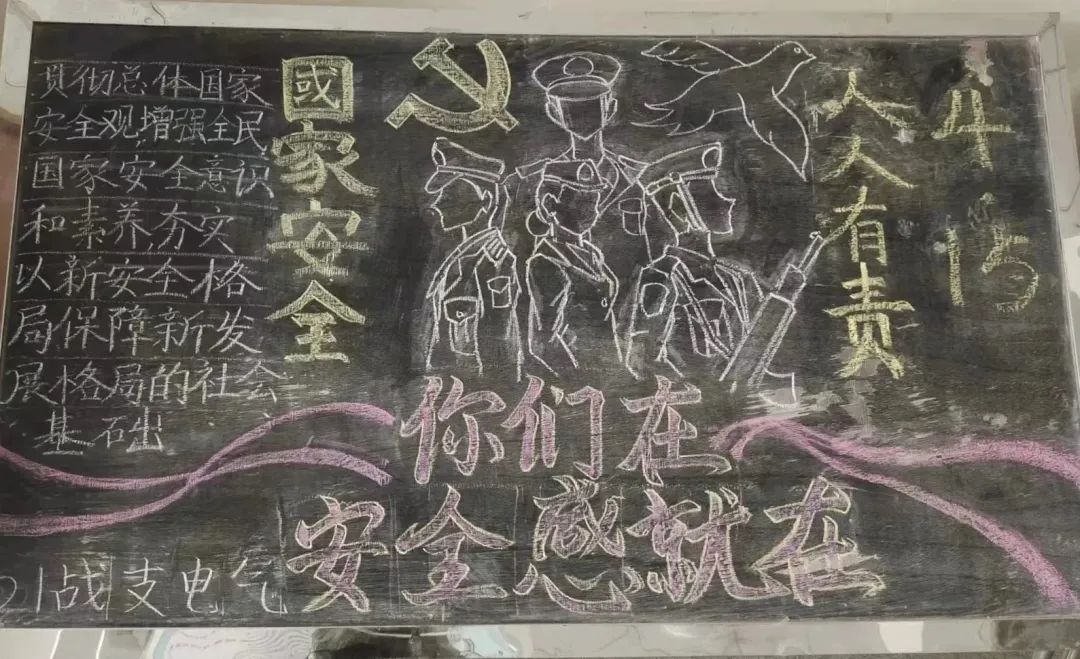 贯彻总体国家
安全观,增强全民
国家安全意识
和素养,夯实
以新安全格
局保障新发
展格局的社会
基础
國家安全
人人有责
4
15
你们在
安全感就在
21战支电气